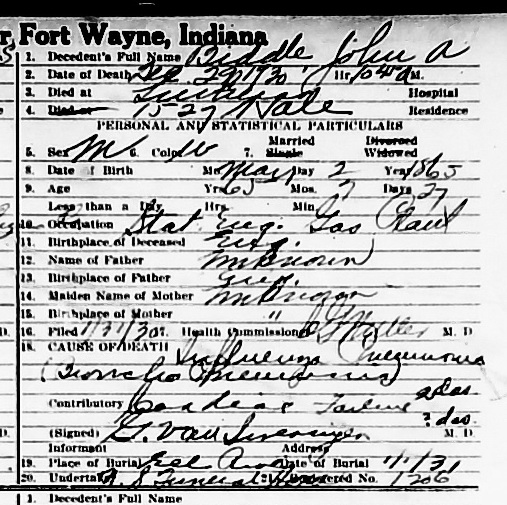 Fort Wayne, Indiana
1. Decedent's Full Name Biddle John A
2. Date of Death Dec 29 1930 Hr. 10 45 a M.
3. Died at Lutheran Hospital
4. Died at 1527 Hale Residence
PERSONAL AND STATISTICAL PARTICULARS
5. Sex M 6. Color W 7. Married Single Divorced Widowed
8. Date of Birth Mo May Day 2 Year 1865
9. Age Yrs 65 Mos. 7 Days 27
Less than a Day Hrs. Min.
10. Occupation Stat Eng. Gas Plant
11. Birthplace of Deceased Eng.
12. Name of Father Unknown
13. Birthplace of Father Eng.
14. Maiden Name of Mother Unknown
15. Birthplace of Mother "
16. Filed 1/31/30 17. Health Commissioner M. D.
18. CAUSE OF DEATH Influenza Pneumonia
(Broncho Pneumonia)
Contributory Cardiac Failure 2 das
? das
(Signed) G. Van M. D.
Informant Address
19. Place of Burial Date of Burial 1/1/31
20. Undertaker Funeral Home 21. Registered No. 1206
1. Decedent's Full Name